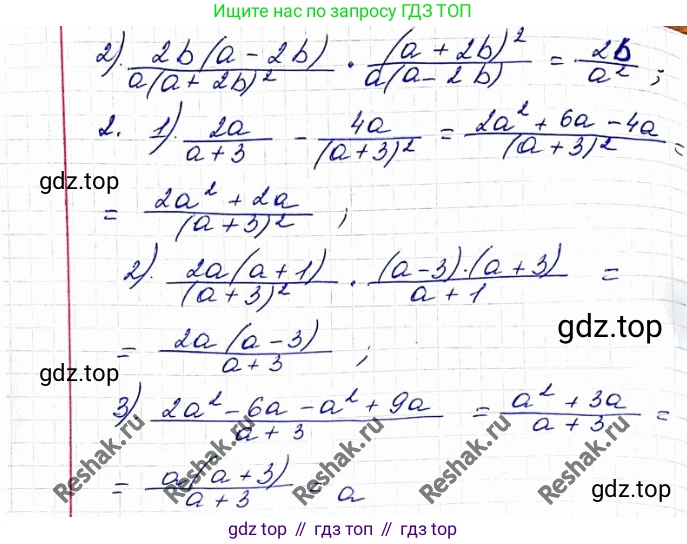 Ищите нас по запросу ГДЗ ТОП
2). 2b(a - 2b) / a(a + 2b)² · (a + 2b)² / a(a - 2b) = 2b / a² ;
2. 1). 2a / a + 3 - 4a / (a + 3)² = 2a² + 6a - 4a / (a + 3)² =
gdz.top
= 2a² + 2a / (a + 3)² ;
2). 2a(a + 1) / (a + 3)² · (a - 3)·(a + 3) / a + 1 =
gdz.top
= 2a(a - 3) / a + 3 ;
gdz.top
3) 2a² - 6a - a² + 9a / a + 3 = a² + 3a / a + 3 =
Reshak.ru
Reshak.ru
Reshak.ru
Reshak.ru
= a(a + 3) / a + 3 = a
gdz.top
gdz top // гдз топ // гдз.top // gdz.top